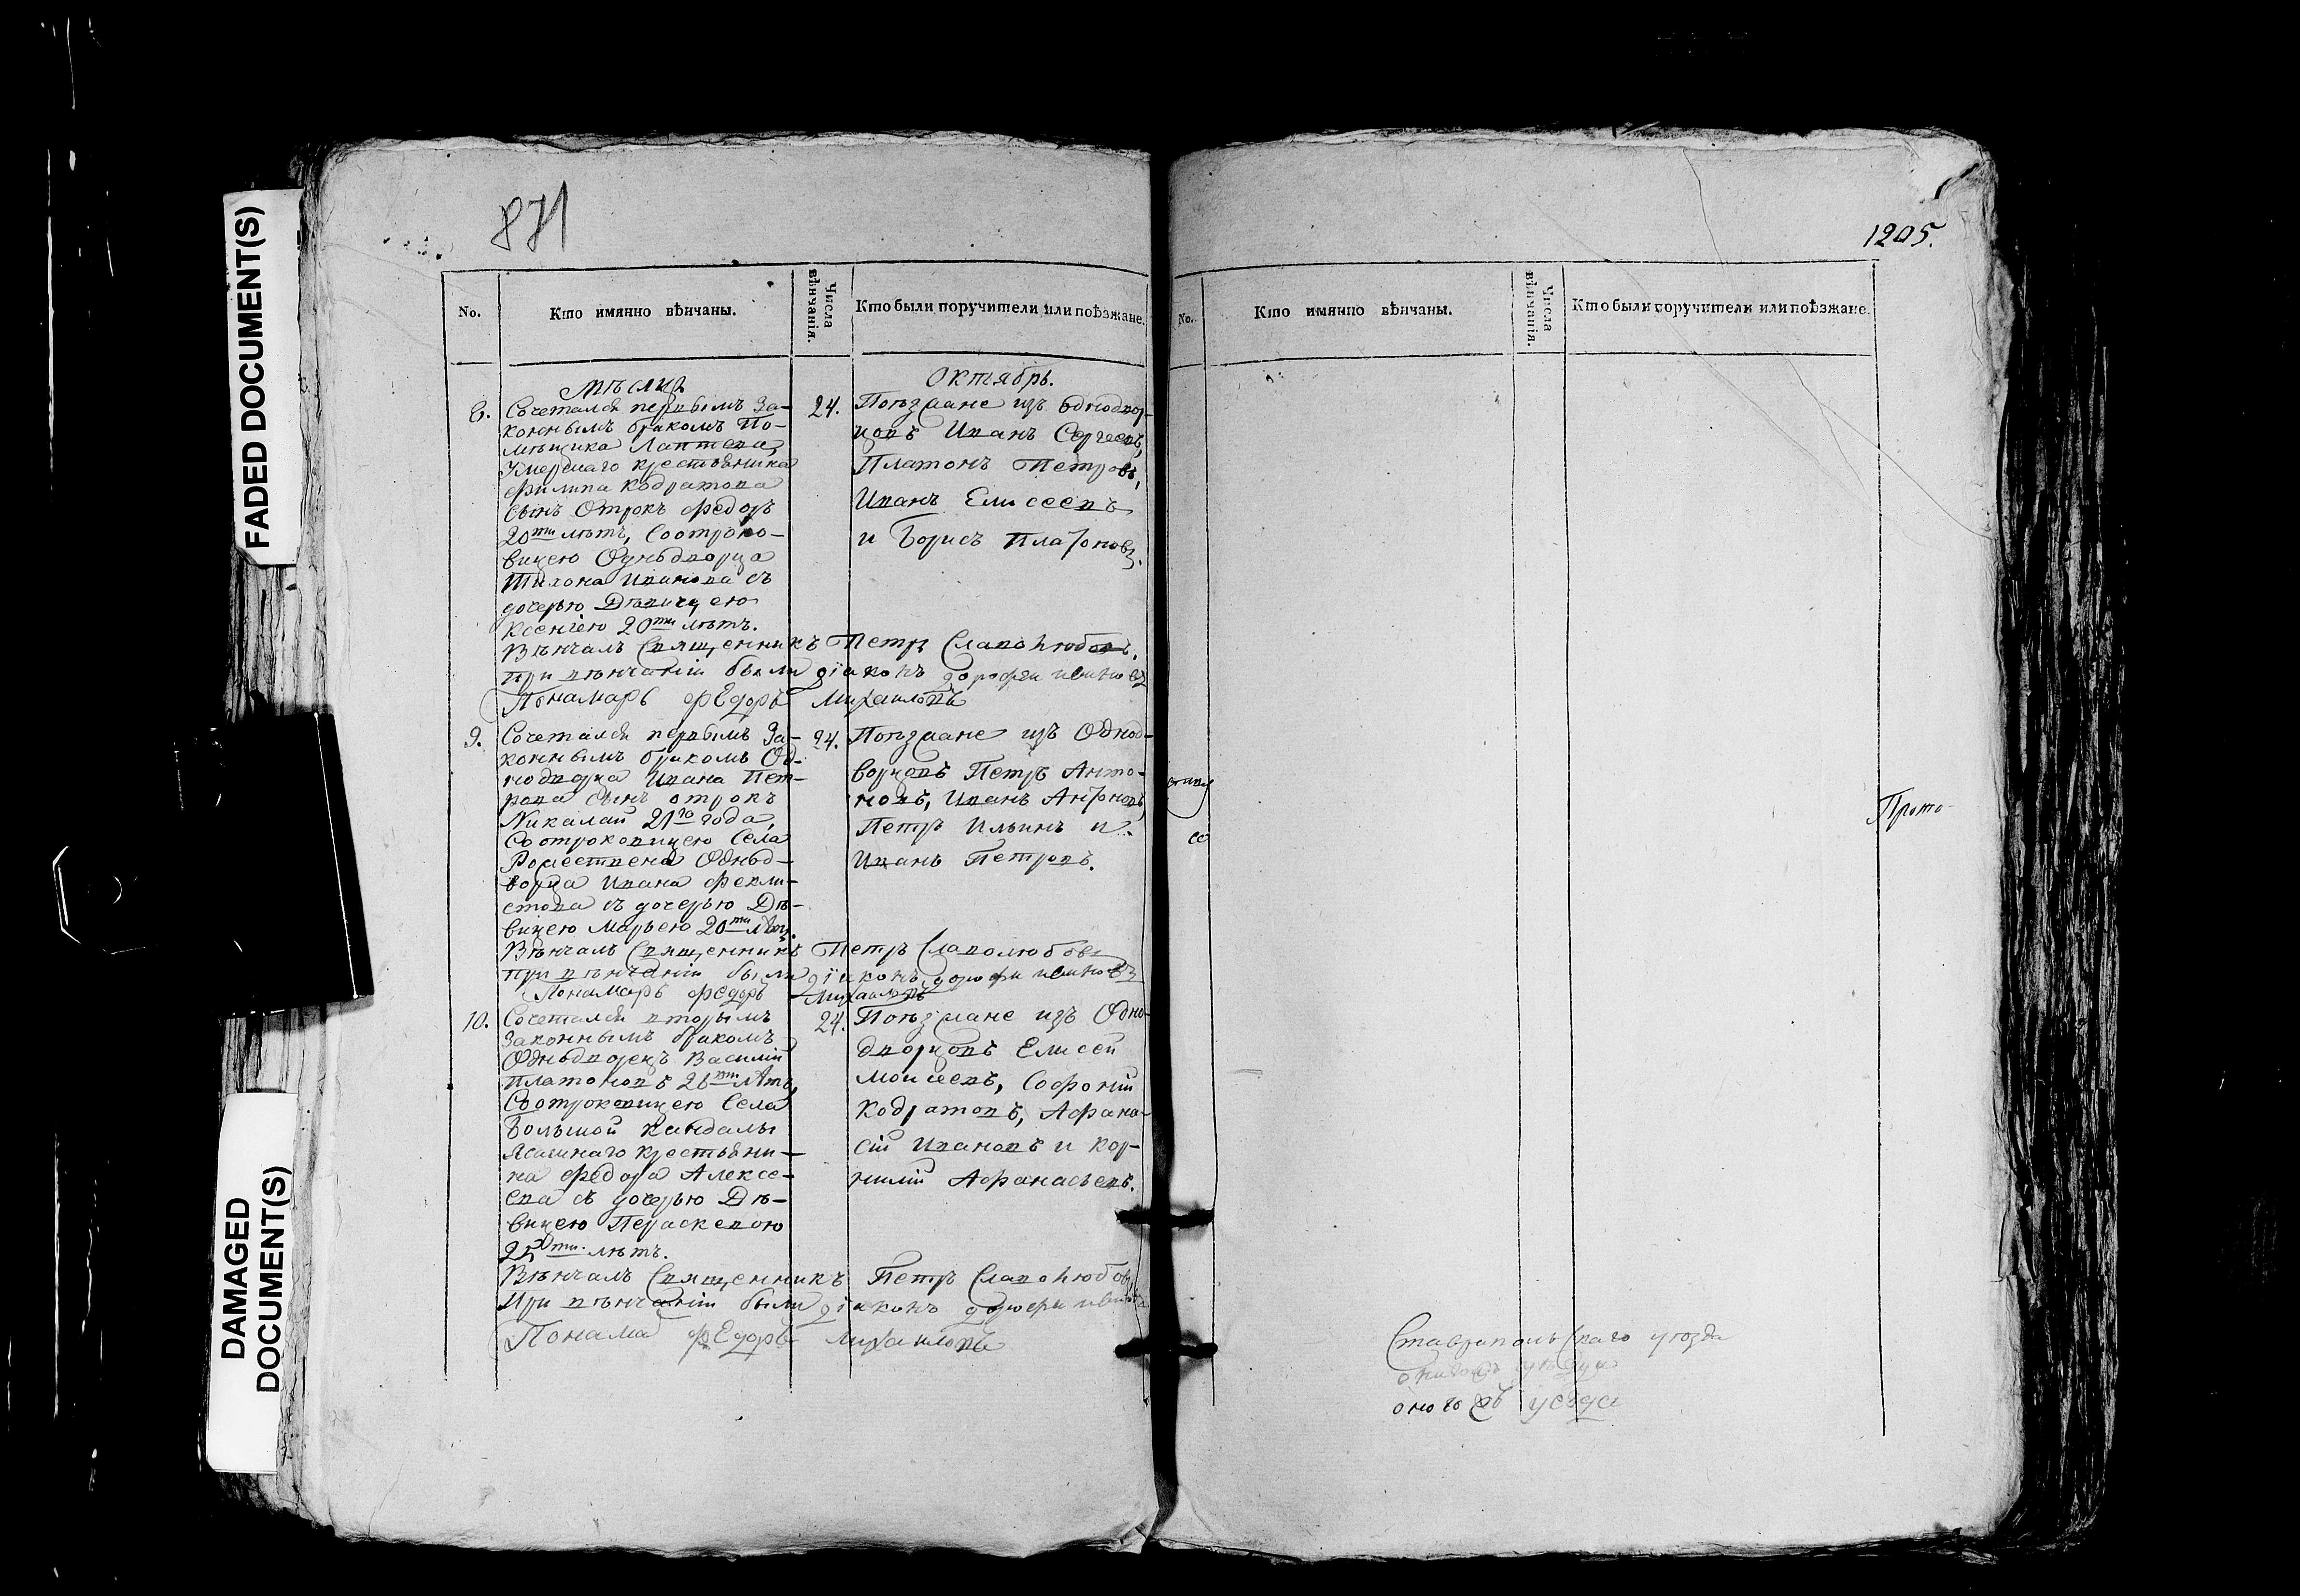 FADED DOCUMENT(S)
DAMAGED
DOCUMENT(S)
871
No.
Кто имянно вѣнчаны.
Числа
вѣнчанія.
Кто были поручители или поѣзжане.
Мѣсяцъ
Октябрь.
Сочетался первымъ За-
коннымъ бракомъ По-
мѣщика Лаптева,
крестьянина
Филипа Кодратова
сынъ Отрокъ Федоръ
20ти лѣтъ, Соотроко-
вицею Однодворца
Тихона Иванова съ
дочерью Дѣвицею
Ксенiею 20ти лѣтъ.
24.
Поѣзжане изъ Однодвор-
цовъ Иванъ Сергеевъ,
Платонъ Петровъ,
Иванъ Елисеевъ
и Борисъ Платоновъ.
Вѣнчалъ Священникъ Петръ Славолюбовъ.
при вѣнчанiи были дiаконъ дорофеи
Понамарь Федоръ Михаиловъ
9.
Сочетался первымъ За-
коннымъ бракомъ Од-
нодворца Ивана Пет-
рова сынъ отрокъ
Николай 21го года,
Соотроковицею Села
Рожествена Однод-
ворца Ивана Фекли-
стова съ дочерью Дѣ-
вицею Марьею 20ти лѣтъ.
24.
Поѣзжане изъ Однод-
ворцовъ Петръ Анто-
новъ, Иванъ Антоновъ,
Петръ Ильинъ и
Иванъ Петровъ.
Вѣнчалъ Священникъ Петръ Славолюбовъ
при вѣнчанiи были дiаконъ дорофи
Понамарь Федоръ Михаиловъ
10.
Сочетался вторымъ
Законнымъ бракомъ
Однодворецъ Василiй
Платоновъ 26ти лѣтъ,
Соотроковицею Села
Большой Кандалы
Ясашнаго крестьяни-
на Федора Алексе-
ева съ дочерью Дѣ-
вицею Параскевою
лѣтъ.
24.
Поѣзжане изъ Одно-
дворцовъ Елисей
Моисеевъ, Софонiй
Кодратовъ, Афана-
сiй Ивановъ и Кор-
нилiй Афанасьевъ.
Вѣнчалъ Священникъ Петръ Славолюбовъ,
При вѣнчанiи были дiаконъ дорофи
Понама Федоръ Михаиловъ
1205.
No.
Кто имянно вѣнчаны.
Числа
вѣнчанія.
Кто были поручители или поѣзжане.
Прото-
Ставропольскаго уѣзда